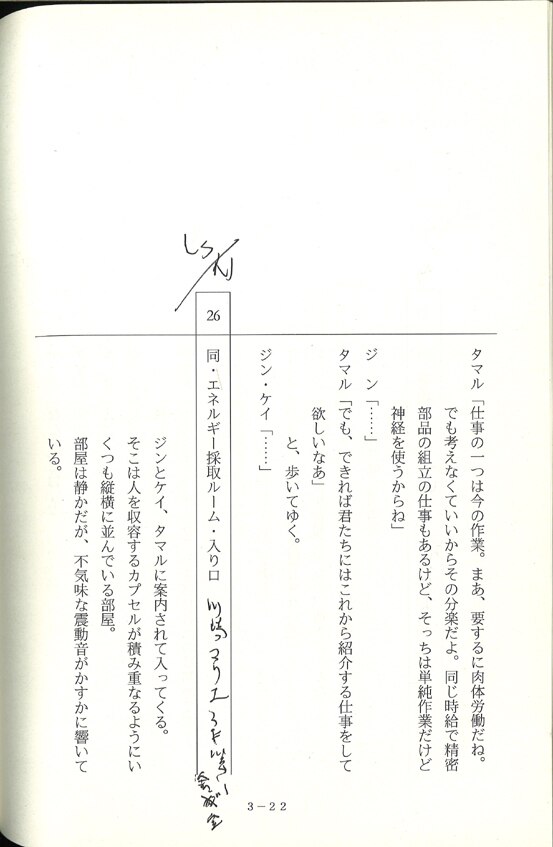 タマル「仕事の一つは今の作業。まあ、要するに肉体労働だね。
でも考えなくていいからその分楽だよ。同じ時給で精密
部品の組立の仕事もあるけど、そっちは単純作業だけど
神経を使うからね」
ジン「……」
タマル「でも、できれば君たちにはこれから紹介する仕事をして
欲しいなあ」
と、歩いてゆく。
ジン・ケイ「……」
26 同・エネルギー採取ルーム・入り口
ジンとケイ、タマルに案内されて入ってくる。
そこは人を収容するカプセルが積み重なるようにい
くつも縦横に並んでいる部屋。
部屋は静かだが、不気味な震動音がかすかに響いて
いる。
3-22